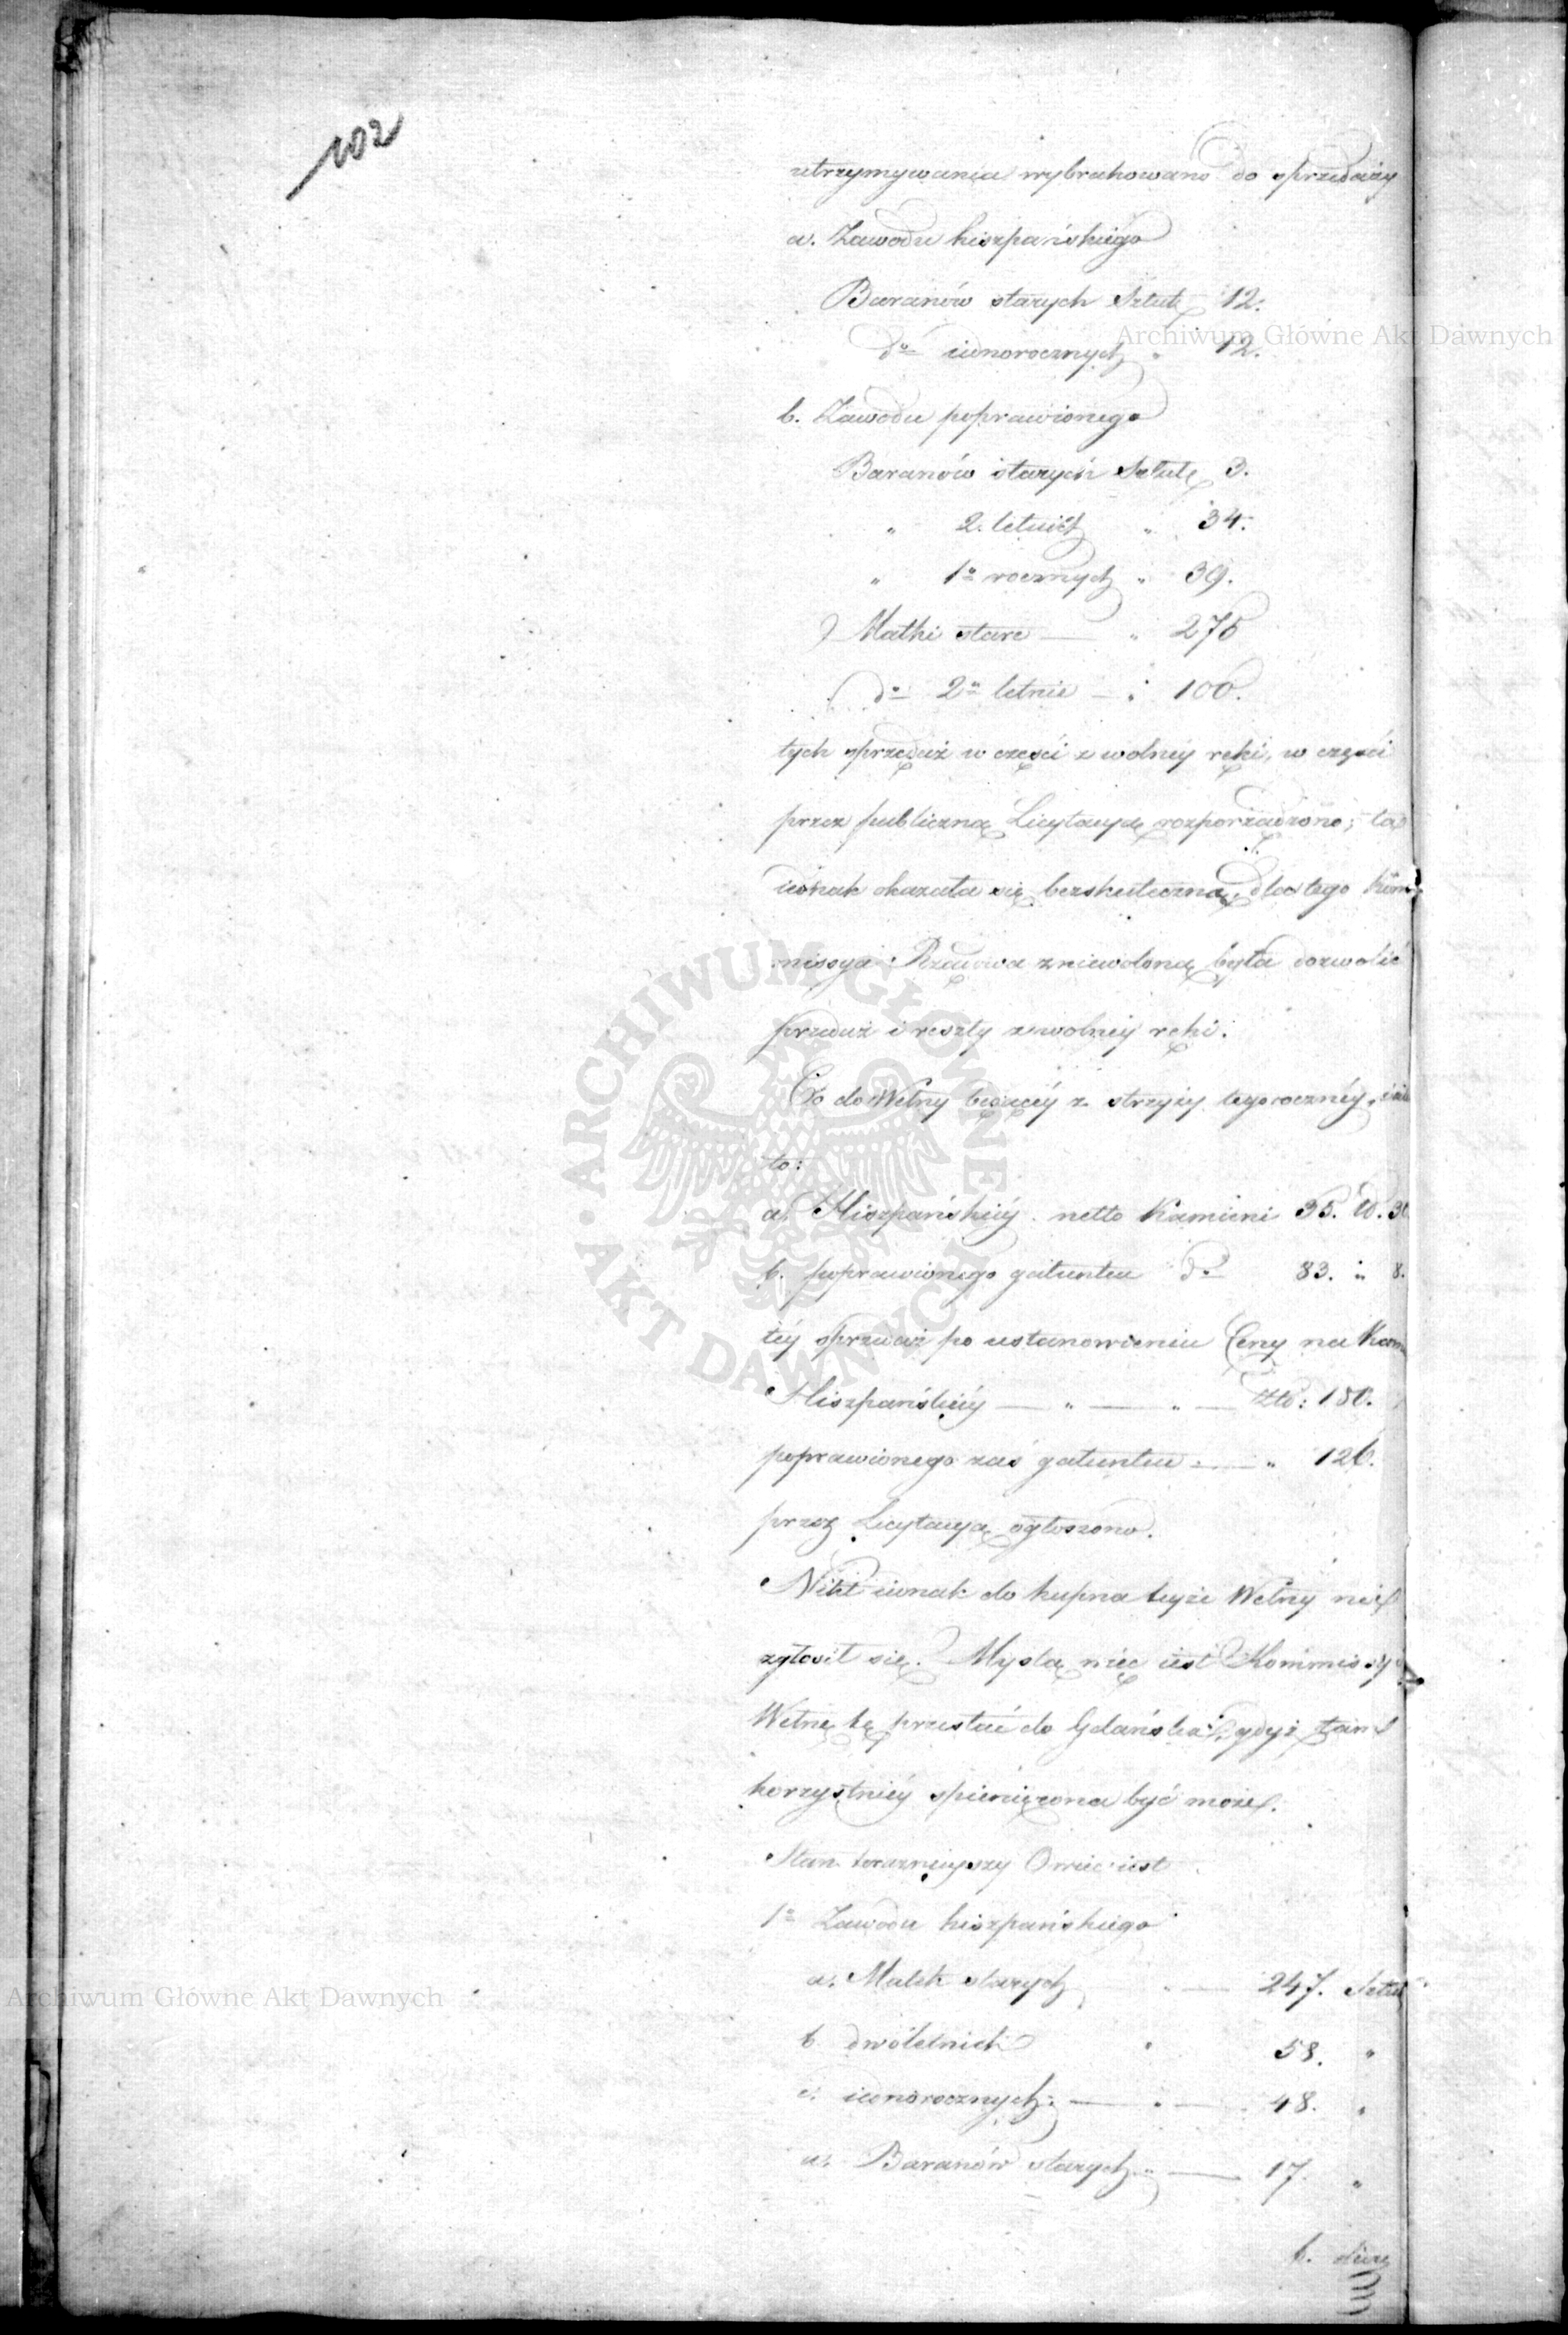 102
utrzymywania wybrakowano do sprzedaży
a. Zawodu hiszpańskiego
Baranów starych Sztuk 12.
do iednorocznych " 12.
b. Zawodu poprawionego
Baranów starych Sztuk 3.
" 2. letnich " 34.
" 1o rocznych " 39.
Matki stare — " 275
do 2o letnie — " 100.
tych sprzedaż w części z wolnéy ręki, w części
przez publiczną Licytacyą rozporządzono; ta
iednak okazała się bezskuteczną, dla tego Kom
missya Rządowa zniewoloną była dozwolić
przedaż i reszty z wolnéy ręki.
Co do Wełny będącéy z strzyży tegorocznéy,
to:
a. Hiszpańskiéy netto Kamieni 35. 
b. poprawionego gatunku do 83. " 8.
téy sprzedaż po ustanowieniu Ceny na Kam
Hiszpańskiéy — " — " — Złp: 180.
poprawionego zaś gatunku — " 126.
przez Licytacyą ogłoszono.
Nikt iednak do kupna teyże Wełny nie
zgłosił się. Myslą więc iest Kommissyi
Wełnę tę przesłać do Gdańska, gdyż tam
korzystniéy spieniężona być może.
Stan teraznieyszy Owiec iest
1o Zawodu hiszpańskiego
a. Matek starych — 247. Sztuk
b. dwóletnich " 58. "
c. iednorocznych — " — 48. "
a. Baranów starych " — 17. "
b.
Archiwum Główne Akt Dawnych
ARCHIWUM GŁÓWNE AKT DAWNYCH
Archiwum Główne Akt Dawnych